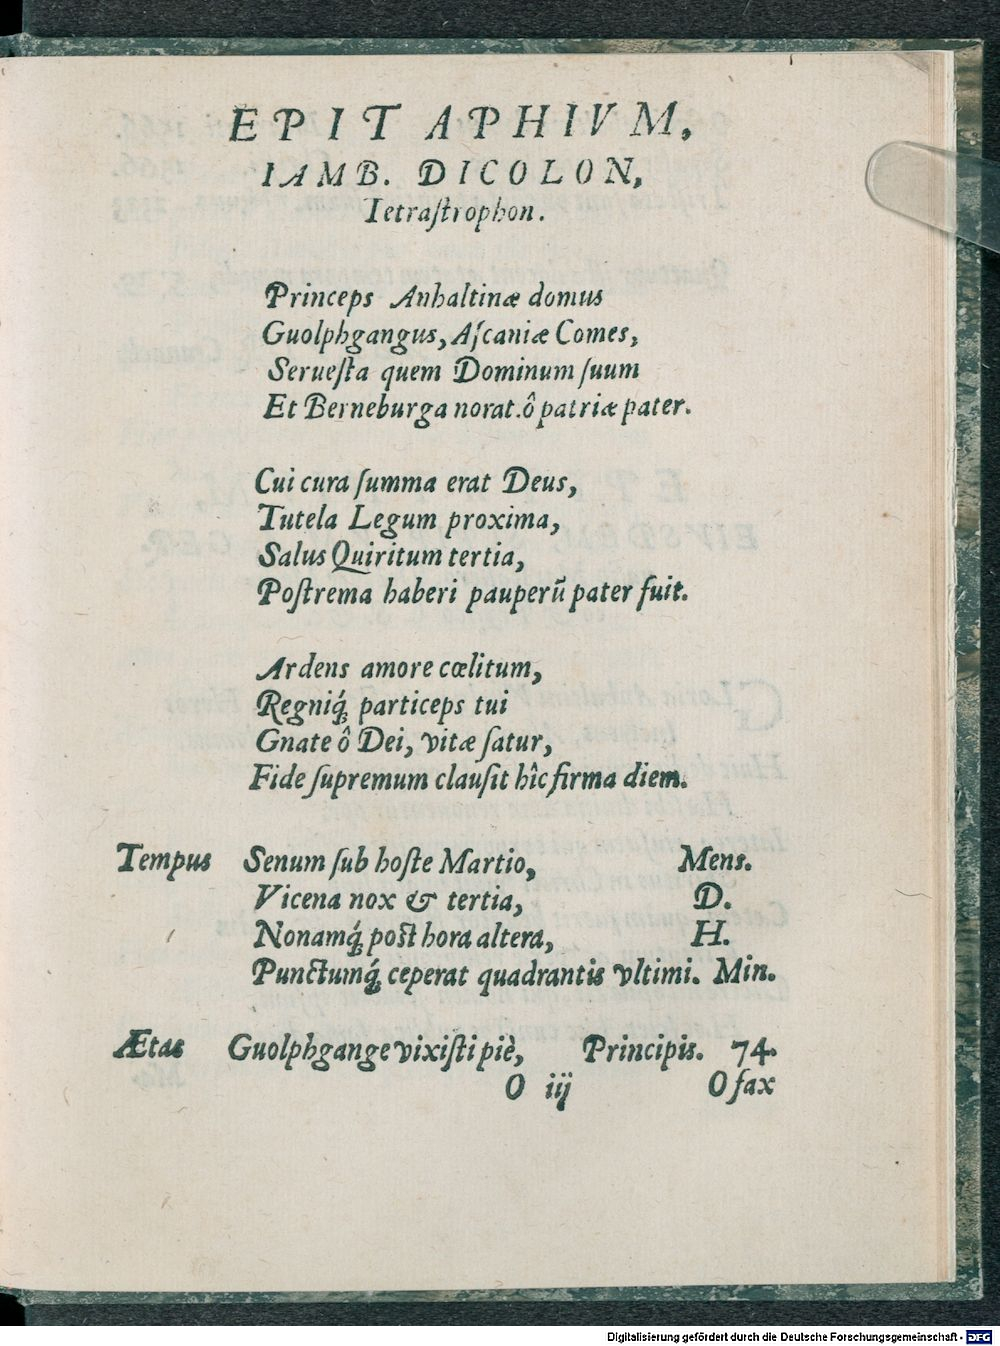 EPITAPHIVM,
IAMB. DICOLON,
Tetraſtrophon.
Princeps Anhaltinæ domus
Guolphgangus, Aſcaniæ Comes,
Serueſta quem Dominum ſuum
Et Berneburga norat. ô patriæ pater.
Cui cura ſumma erat Deus,
Tutela Legum proxima,
Salus Quiritum tertia,
Poſtrema haberi pauperū pater fuit.
Ardens amore cœlitum,
Regniq́; particeps tui
Gnate ô Dei, vitæ ſatur,
Fide ſupremum clauſit hîc firma diem.
Tempus Senum ſub hoſte Martio, Mens.
Vicena nox & tertia, D.
Nonamq́; poſt hora altera, H.
Punctumq́; ceperat quadrantis vltimi. Min.
Ætas Guolphgange vixiſti piè, Principis. 74.
O iij O fax
Digitalisierung gefördert durch die Deutsche Forschungsgemeinschaft - DFG